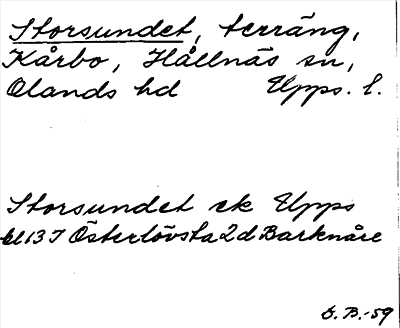 Storsundet, terräng,
Kårbo, Hållnäs sn,
Olands hd Upps. l.
Storsundet ek Upps
bl 13 I Österlövsta 2d Barknåre
G. B.-59